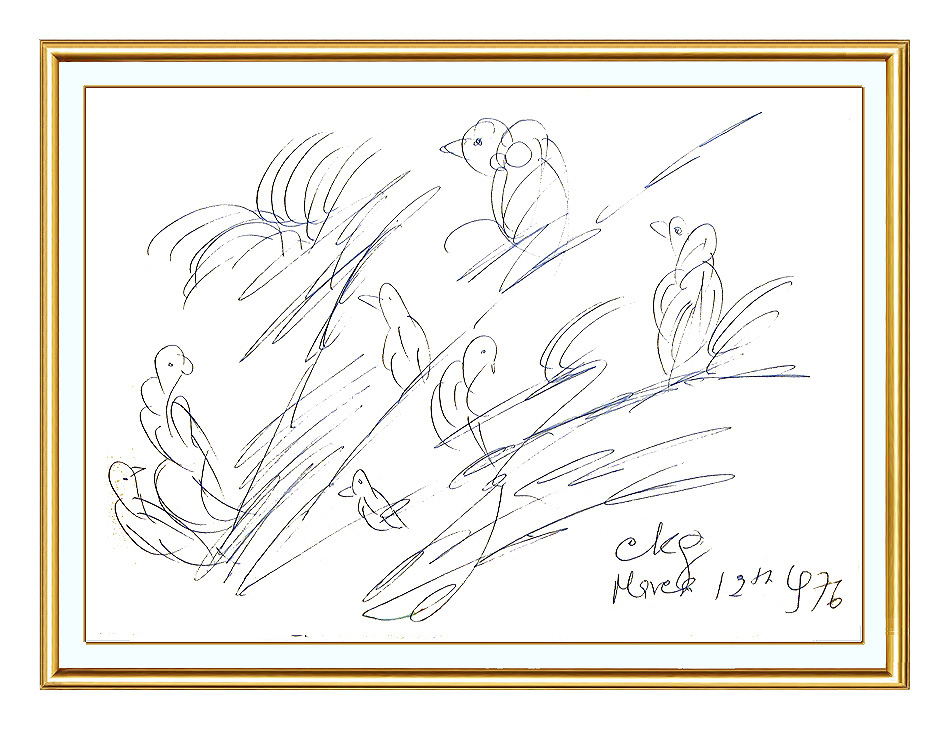 ckg
March 12th 1976